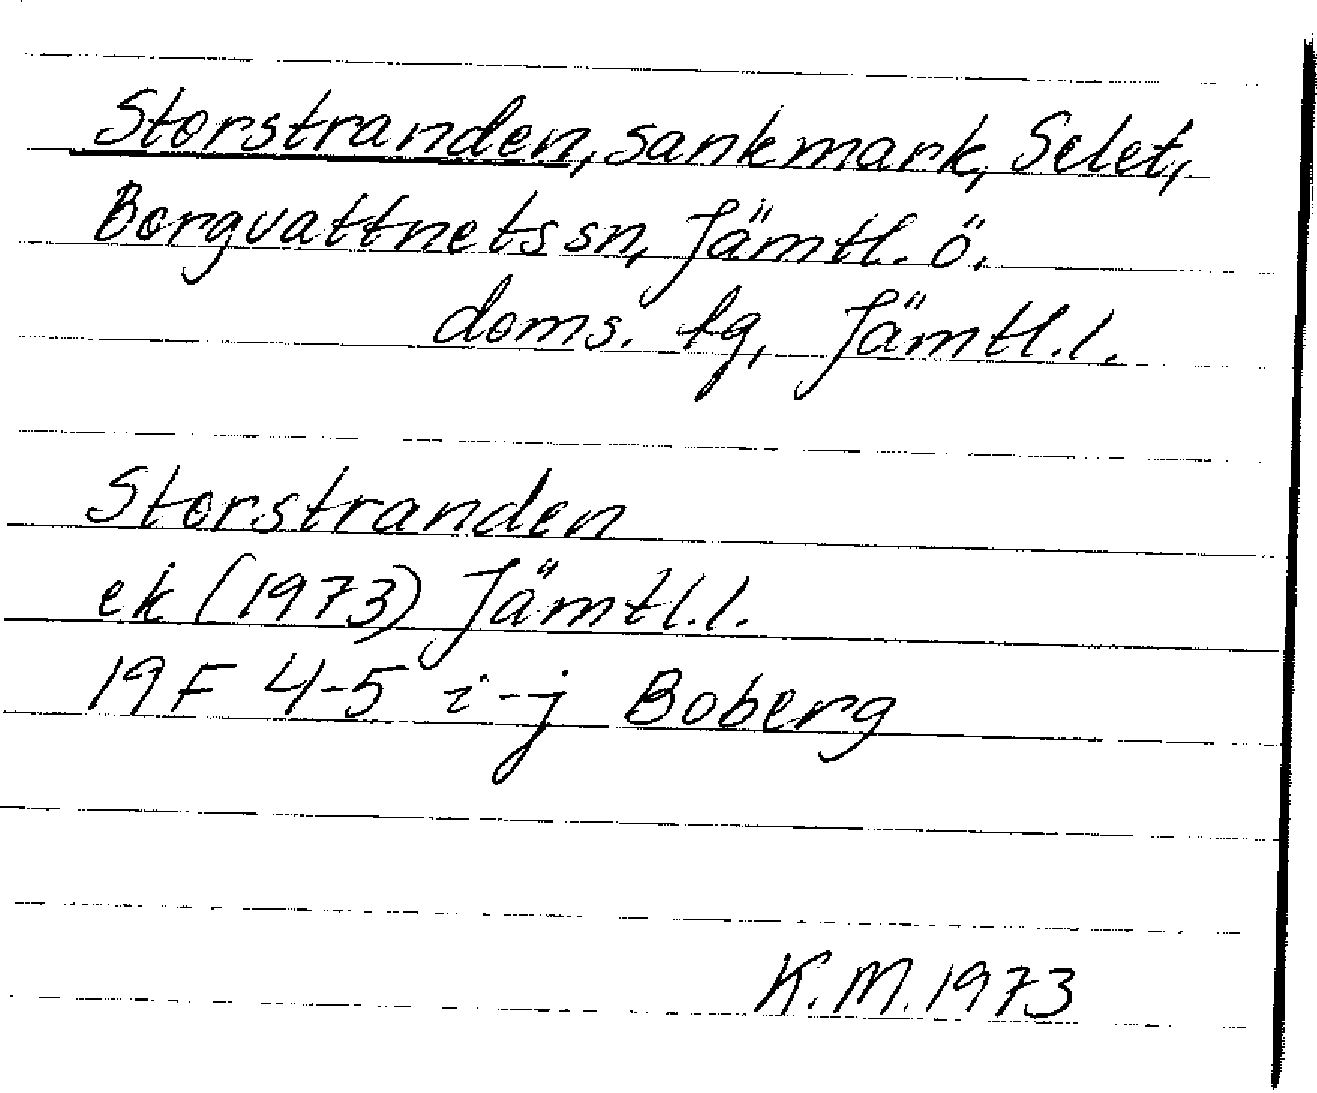 Storstranden, sankmark, Selet,
Borgvattnets sn, Jämtl. ö.
doms. tg, Jämtl. l.
Storstranden
ek (1973) Jämtl. l.
19 F 4-5 i-j Boberg
K. M. 1973